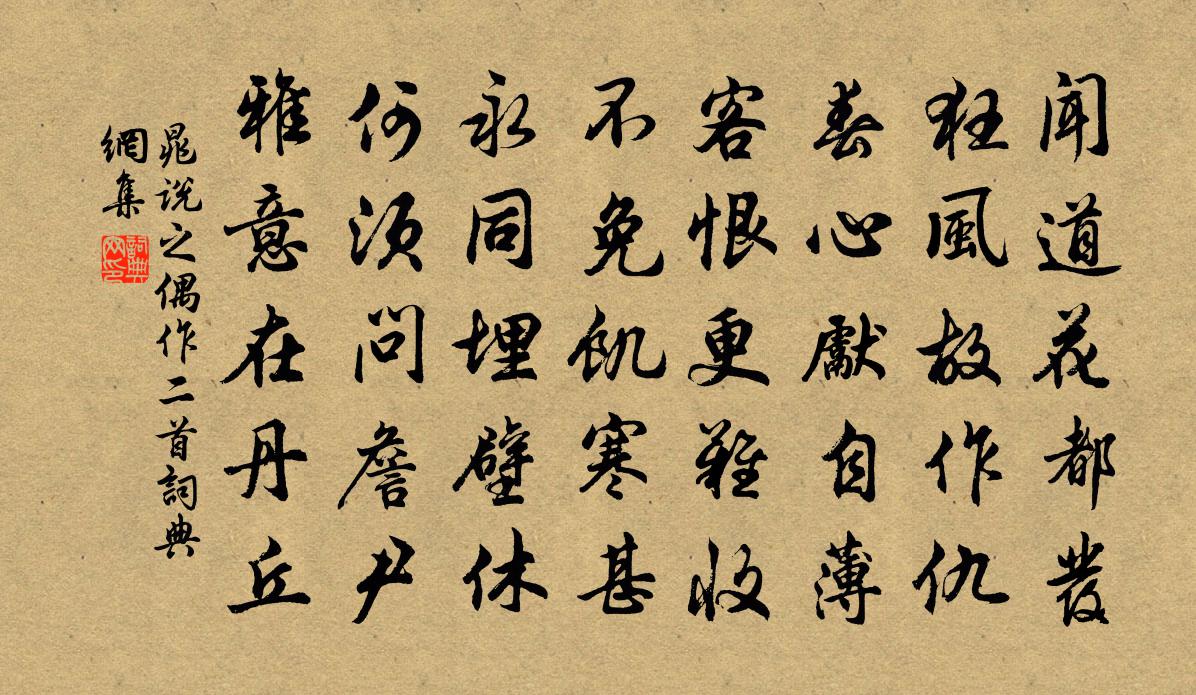 闻道花都發
狂風故作仇
春心獻自薄
客恨更難收
不免飢寒甚
永同埋壁休
何須問詹尹
雅意在丹丘
晁説之偶作二首詞典
網集
詞典
网印